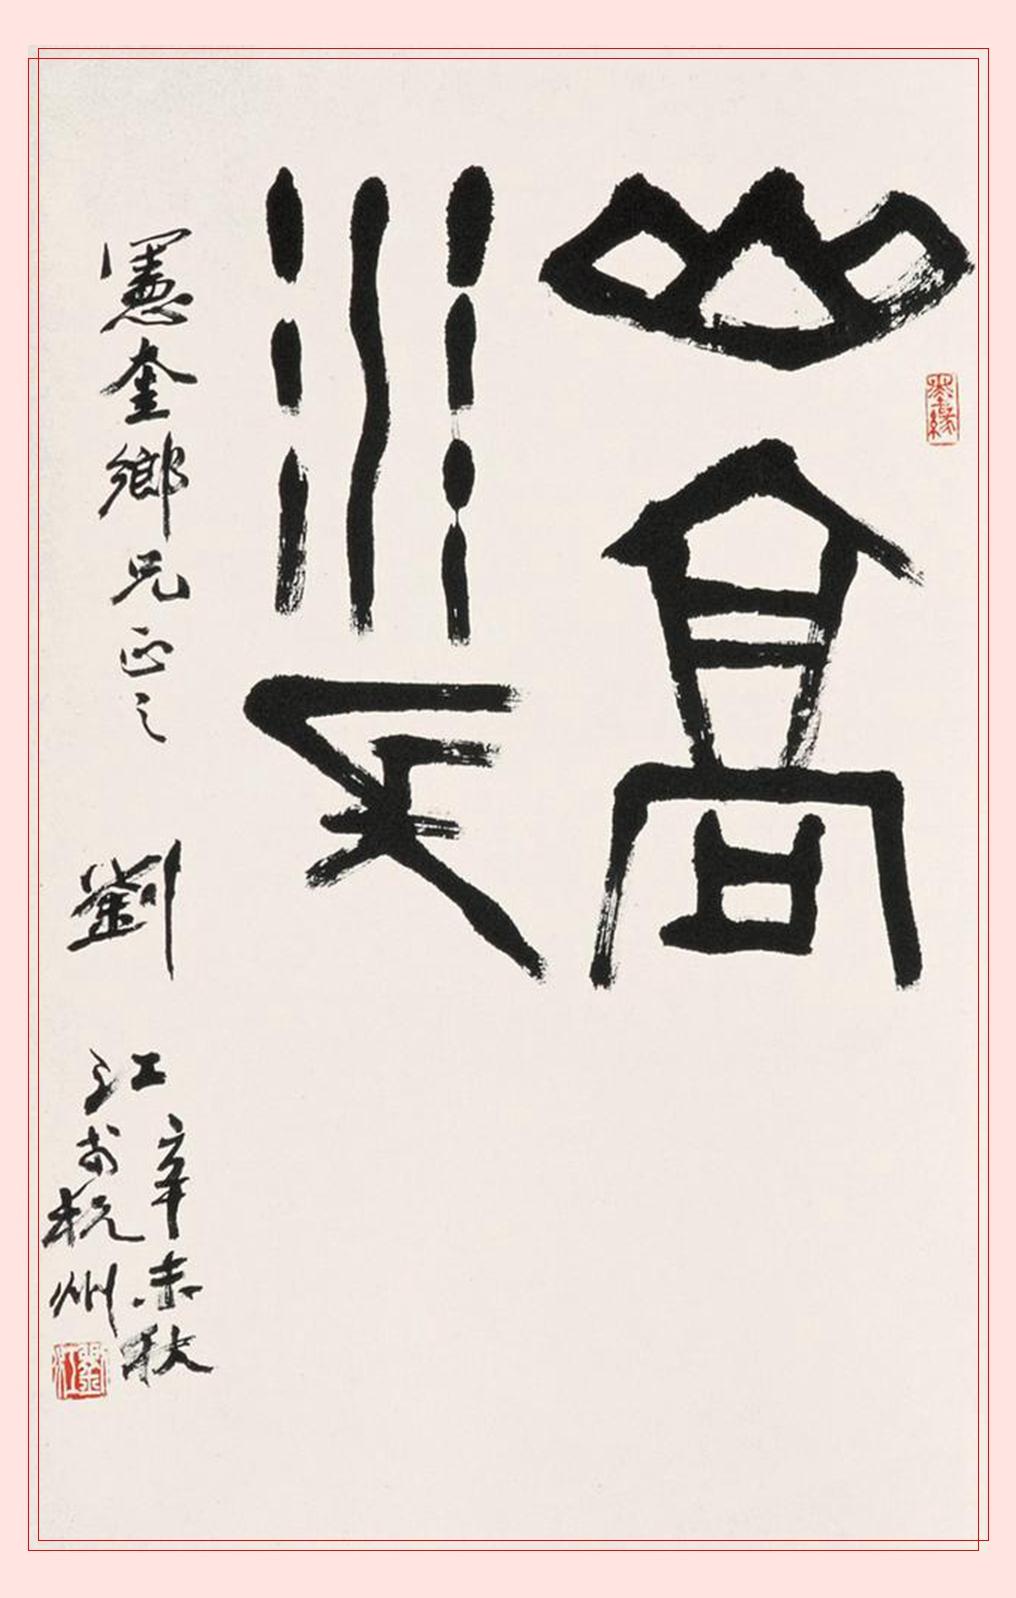 山高
水長
憲奎鄉兄正之
劉江
辛未秋
於杭州
劉江